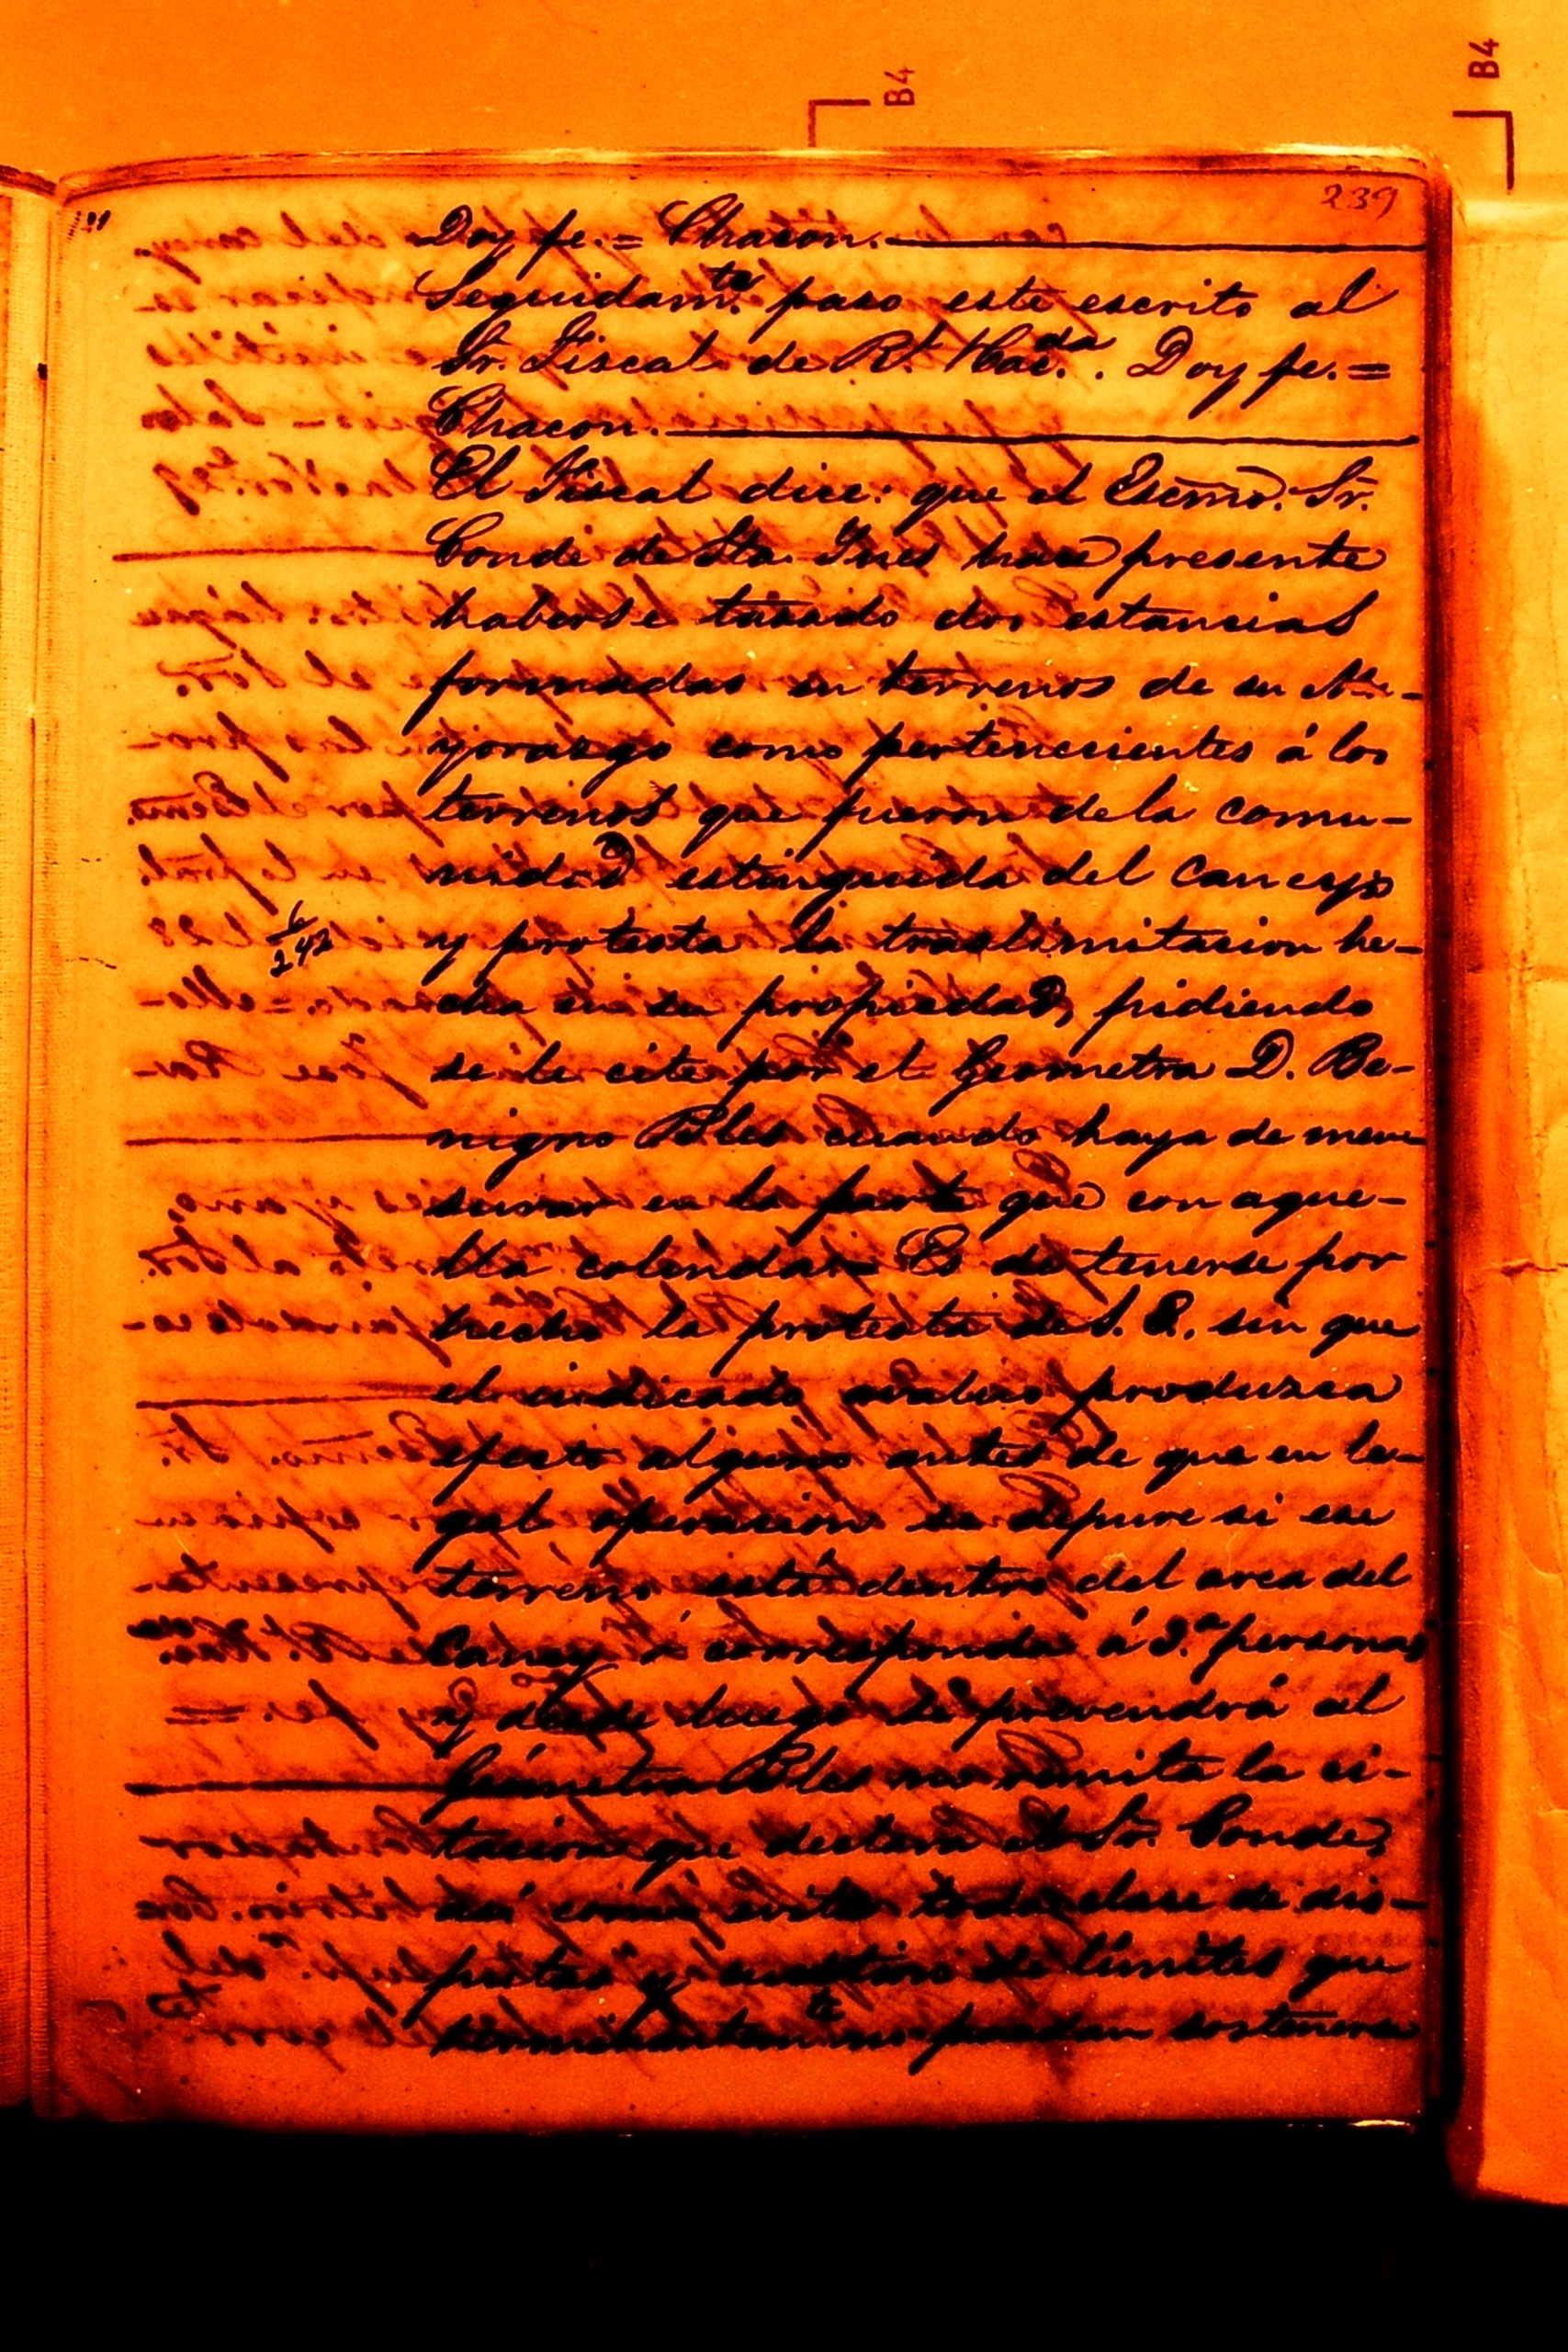 B4
B4
239
Doy fe. = Chacon.
Seguidam.te paso este escrito al
Sr. Fiscal de R.l Hac.da. Doy fe. =
Chacon.
El Fiscal dice: que el Escmo. Sr.
Conde de Sta. Ines hace presente
haberse tasado dos estancias
formadas en terrenos de su Ma-
yorasgo como pertenecientes á los
terrenos que fueron de la comu-
nidad estinguida del Caney
6
242
y protesta la traslimitacion he-
cha en su propiedad, pidiendo
se le cite por el Geometra D. Be-
nigno cuando haya de men
surar en la parte que con aque-
lla colinda. Es de tenerse por
hecha la protesta de S. E. sin que
el indicado avaluo produzca
efecto alguno antes de que en le-
gal operacion se depure si ese
terreno está dentro del area del
Caney ó corresponde á 3.a persona,
y desde luego se prevendrá al
Geómetra no omita la ci-
tacion que desea el Sr. Conde,
así como evite toda clase de dis-
putas y de límites que
puedan sostenerse